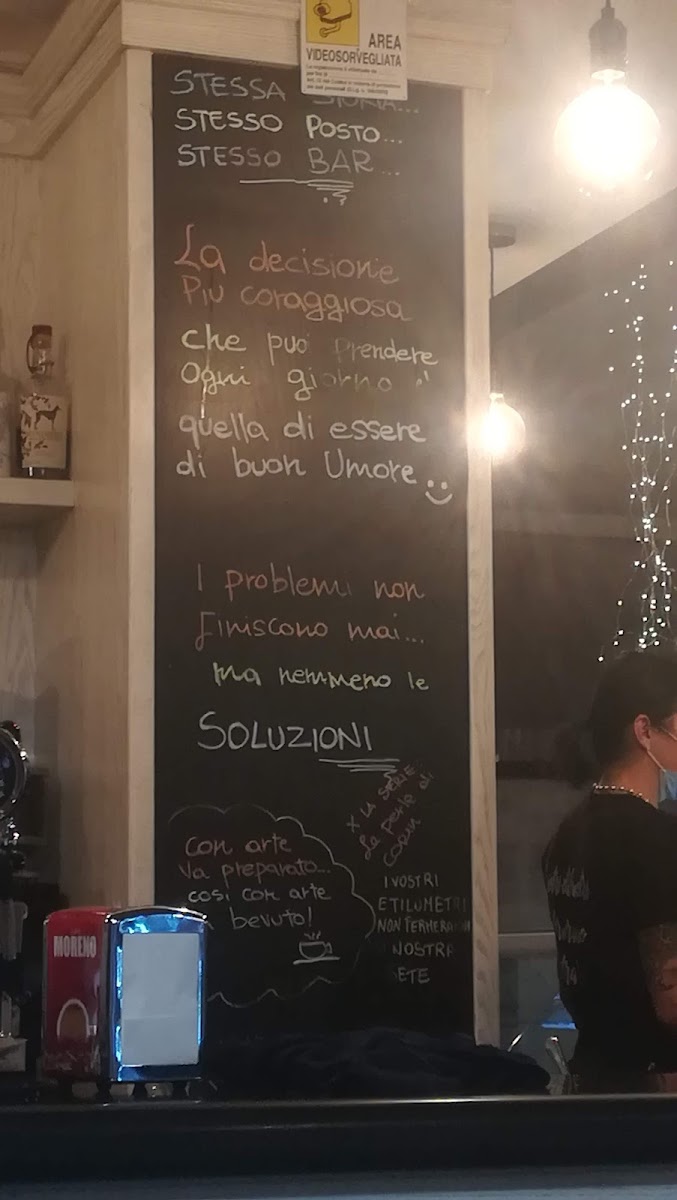 AREA
VIDEOSORVEGLIATA
STESSA STORIA...
STESSO POSTO...
STESSO BAR...
La decisione
Più coraggiosa
che può prendere
Ogni giorno è
quella di essere
di buon Umore
I problemi non
finiscono mai...
ma nemmeno le
SOLUZIONI
X LA SERIE
La perle di
con arte
va preparato...
così con arte
bevuto!
I VOSTRI
ETILOMETRI
NON FERMERANNO
NOSTRA
ETE
MORENO